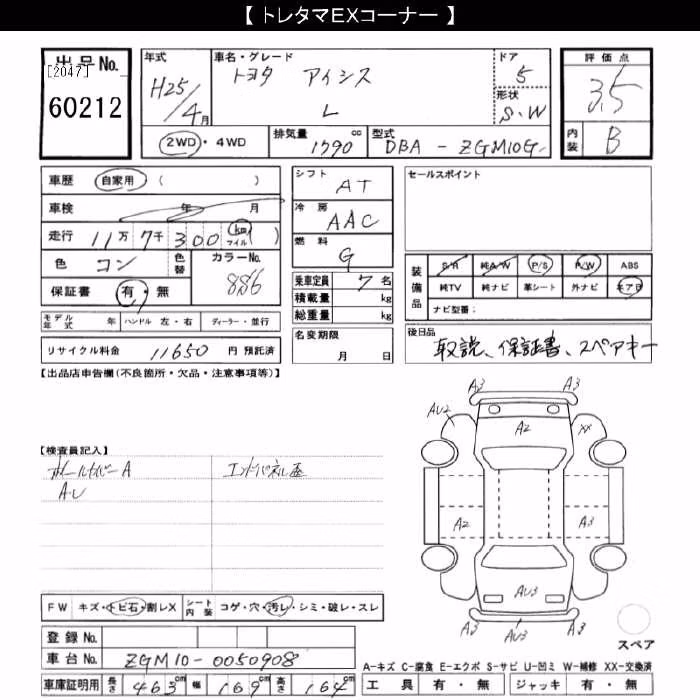 【 トレタマEXコーナー 】
出品No.
[2047]
60212
年式
H25/4月
車名・グレード
トヨタ アイシス
L
ドア
5
形状
S・W
評価点
3.5
内装
B
2WD・4WD
排気量
1790 cc
型式
DBA - ZGM10G
車歴 自家用 ( )
車検 年 月
走行 11万7千300 (km マイル)
色 コン
色替
カラーNo.
8S6
保証書 有・無
モデル年式 年
ハンドル 左・右
ディーラー・並行
リサイクル料金 11650 円 預託済
シフト
AT
冷房
AAC
燃料
G
乗車定員 7 名
積載量 kg
総重量 kg
名変期限
月 日
セールスポイント
装備品
S/R 純A/W P/S P/W ABS
純TV 純ナビ 革シート 外ナビ キアB
ナビ型番:
後日品
取説、保証書、スペアキー
【出品店申告欄(不良箇所・欠品・注意事項等)】
【検査員記入】
ホイールカバーA
AU
エンドパネル歪
A3 A3
AU2 A2 XX
A2 A3
AU3
A3 AU3 A3
スペア
FW キズ・トビ石・割レX
シート内装 コゲ・穴・汚レ・シミ・破レ・スレ
登録No.
車台No. ZGM10-0050908
車庫証明用 長さ 463cm 幅 169cm 高さ 164cm
A-キズ C-腐食 E-エクボ S-サビ U-凹ミ W-補修 XX-交換済
工具 有・無 ジャッキ 有・無